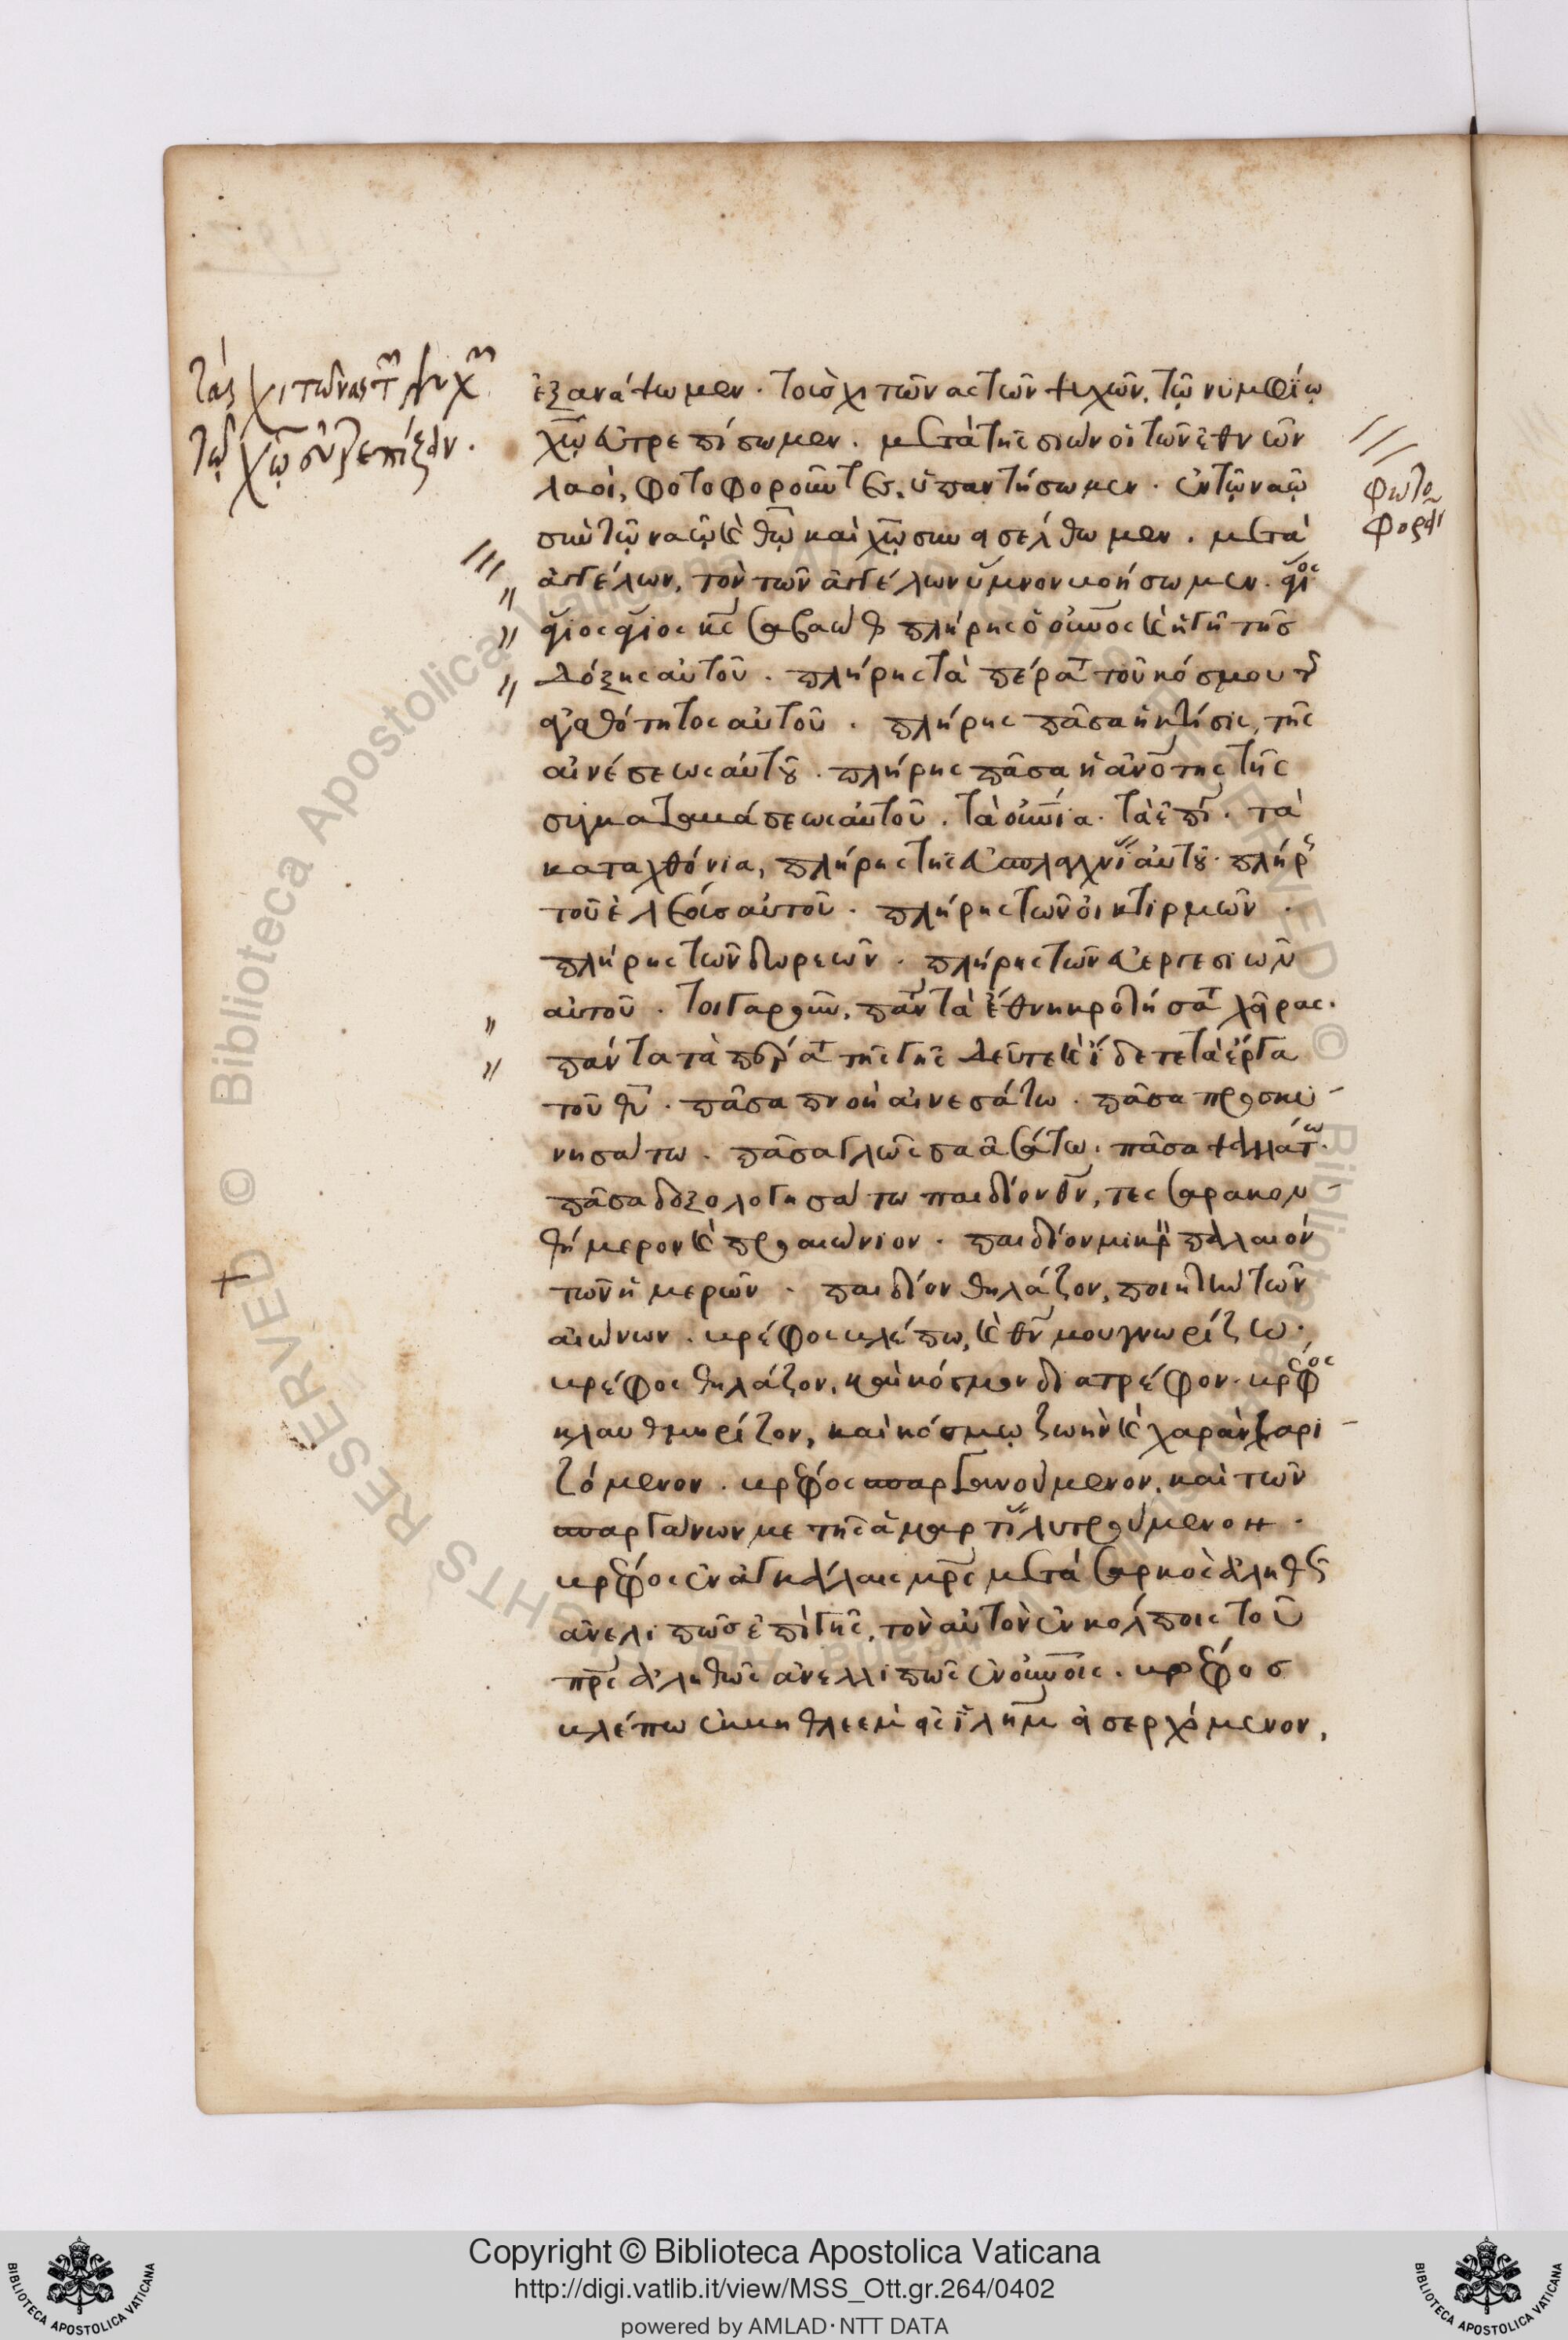 τοὺς χιτῶνας τῶν ψυχῶν
τῷ χω̅
ἐξανάψωμεν. τοὺς χιτῶνας τῶν ψυχῶν, τῷ νυμφίῳ
χω̅ εὐτρεπίσωμεν. μετὰ τῆς σιὼν οἱ τῶν ἐθνῶν
λαοὶ, φοτοφοροῦντες, ὑπαντήσωμεν. ἐν τῷ ναῷ
σὺν τῷ ναῷ καὶ θω̅ καὶ χω̅ συνεισέλθωμεν. μετὰ
ἀγγέλων, τὸν τῶν ἀγγέλων ὕμνον βοήσωμεν. ἅγιος
ἅγιος ἅγιος κς̅ σαβαὼθ πλήρης ὁ οὐνος καὶ ἡ γῆ τῆς
δόξης αὐτοῦ. πλήρης τὰ πέρατα τοῦ κόσμου τῆς
ἀγαθότητος αὐτοῦ. πλήρης πᾶσα ἡ κτίσις, τῆς
αἰνέσεως αὐτοῦ. πλήρης πᾶσα ἡ ἀνότης τῆς
συγκαταβάσεως αὐτοῦ. τὰ οὐνια. τὰ ἐπί. τὰ
καταχθόνια, πλήρης τῆς εὐσπλαγχνίας αὐτοῦ. πλήρης
τοῦ ἐλέους αὐτοῦ. πλήρης τῶν οἰκτιρμῶν.
πλήρης τῶν δωρεῶν. πλήρης τῶν εὐεργεσιῶν
αὐτοῦ. τοιγαροῦν, πάντα τὰ ἔθνη κροτήσατε χεῖρας.
πάντα τὰ πέρατα τῆς γῆς δεῦτε καὶ ἴδετε τὰ ἔργα
τοῦ θυ̅. πᾶσα πνοὴ αἰνεσάτω. πᾶσα προσκυ-
νησάτω. πᾶσα γλῶσσα ἀσάτω. πᾶσα ψαλλάτω.
πᾶσα δοξολογησάτω παιδίον θν̅, τεσσαρακον-
θήμερον καὶ προαιώνιον. παιδίον μικρὸν παλαιὸν
τῶν ἡμερῶν. παιδίον θηλάζον, ποιητὴν τῶν
αἰώνων. βρέφος βλέπω, καὶ θν̅ μου γνωρίζω.
βρέφος θηλάζον, καὶ κόσμον διατρέφον. βρέφος
κλαυθμηρίζον, καὶ κόσμῳ ζωὴν καὶ χαρὰν χαρι-
ζόμενον. βρέφος σπαργανούμενον, καὶ τῶν
σπαργάνων με τῆς ἁμαρτίας λυτρούμενον.
βρέφος ἐν ἀγκάλαις μρς̅ μετὰ σαρκὸς ἀληθῶς
ἀνελιπῶς ἐπὶ γῆς, τὸν αὐτὸν ἐν κόλποις τοῦ
πρς̅ ἀληθῶς ἀνελλιπῶς ἐν οὐνοις. βρέφος
βλέπω ἐκ βηθλεεμ εἰς ἱλημ̅ εἰσερχόμενον,
φωτο
φορεῖ
Copyright © Biblioteca Apostolica Vaticana
http://digi.vatlib.it/view/MSS_Ott.gr.264/0402
powered by AMLAD·NTT DATA
BIBLIOTECA APOSTOLICA VATICANA
BIBLIOTECA APOSTOLICA VATICANA